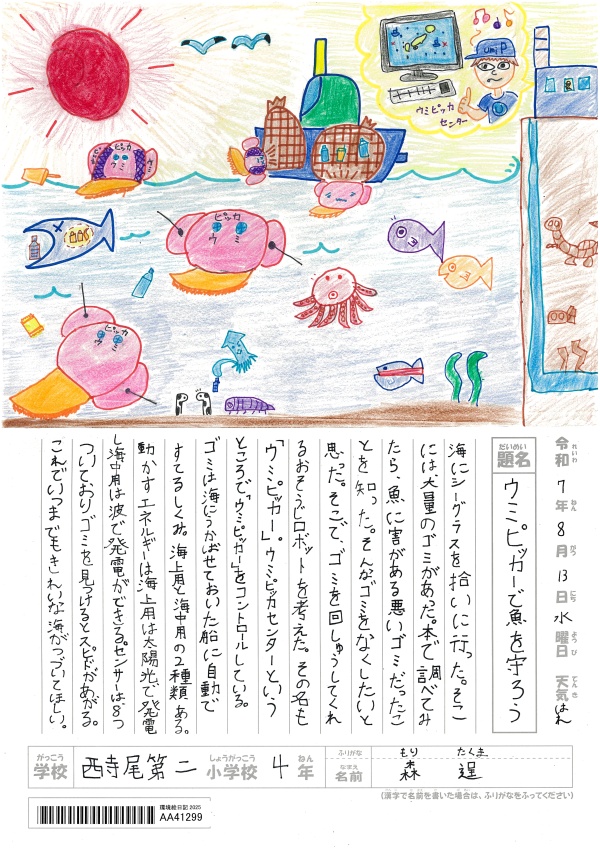 umiP
ウミピッカ
センター
ピッカ
ウミ
ピッカ
ウ ミ
ピッカ
ウ ミ
令和7年8月13日水曜日 天気はれ
れいわ ねん がつ にち ようび てんき
だいめい
題名
ウミピッカーで魚を守ろう
海にシーグラスを拾いに行った。そこ
には大量のゴミがあった。本で調べてみ
たら、魚に害がある悪いゴミだったこ
とを知った。そんなゴミをなくしたいと
思った。そこで、ゴミを回しゅうしてくれ
るおそうじロボットを考えた。その名も
「ウミピッカー」。ウミピッカセンターという
ところで「ウミピッカー」をコントロールしている。
ゴミは海にうかばせておいた船に自動で
すてるしくみ。海上用と海中用の2種類ある。
動かすエネルギーは海上用は太陽光で発電
し海中用は波で発電ができる。センサーは8つ
ついておりゴミを見つけるとスピードがあがる。
これでいつまでもきれいな海がつづいてほしい。
がっこう しょうがっこう ねん
学校 西寺尾第二 小学校 4 年
ふりがな もり たくま
なまえ
名前 森 逞
(漢字で名前を書いた場合は、ふりがなをふってください)
環境絵日記 2025
AA41299